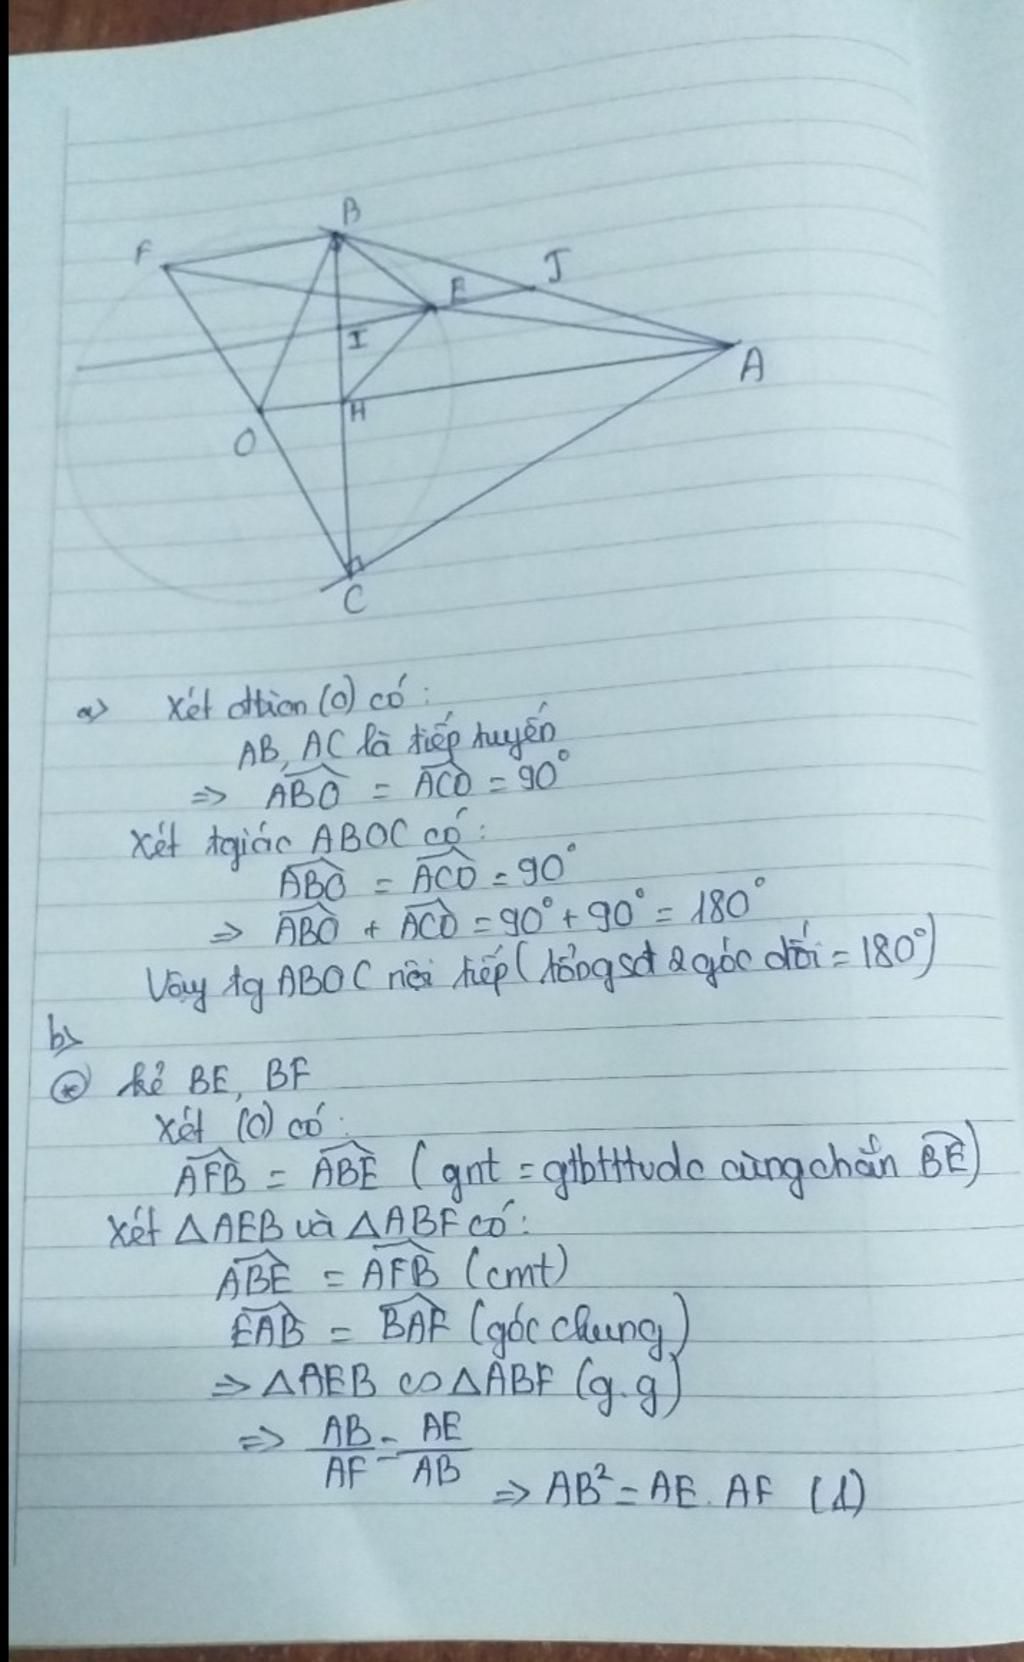 B
F
J
E
I
A
H
O
C
a) Xét đtròn (O) có:
AB, AC là tiếp tuyến
=> ABO = ACO = 90°
Xét tgiác ABOC có:
ABO = ACO = 90°
=> ABO + ACO = 90° + 90° = 180°
Vậy tg ABOC nội tiếp (tổng sđ 2 góc đối = 180°)
b)
* kẻ BE, BF
Xét (O) có:
AFB = ABE (gnt = gtbtttvdc cùng chắn BE)
Xét △AEB và △ABF có:
ABE = AFB (cmt)
EAB = BAF (góc chung)
=> △AEB ∽ △ABF (g.g)
=> AB/AF = AE/AB
=> AB² = AE. AF (1)